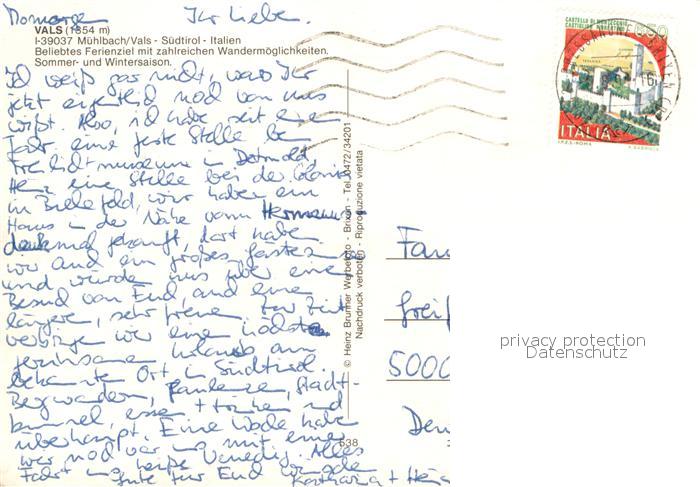 Ihr Lieben.
VALS (1354 m)
I-39037 Mühlbach/Vals - Südtirol - Italien
Beliebtes Ferienziel mit zahlreichen Wandermöglichkeiten.
Sommer- und Wintersaison.
Ich weiß gar nicht, was Ihr
jetzt eigentlich noch von uns
wißt. Also, ich habe seit einem
Jahr eine feste Stelle beim
Freilichtmuseum in Detmold,
Heinz eine Stelle bei der
in Bielefeld, wir haben ein
Haus in der Nähe vom Hermanns-
denkmal gekauft, dort haben
wir auch ein großes Gästezimmer
und würden uns über einen
Besuch von Euch, auch eine
längere, sehr freuen. Zur Zeit
verbringen wir eine höchst
gemeinsame Urlaub am
bekannten Ort in Südtirol.
Bergwandern, Faulenzen, Stadt-
bummel, essen + trinken und
überhaupt. Eine Woche haben
wir noch vor uns mit einer
Fahrt nach Venedig. Alles
Gute für Euch
Katharina + Heinz
© Heinz Brunner Werbefoto - Brixen - Tel. 0472/34201
Nachdruck verboten - Riproduzione vietata
538
CASTELLO DI MONTECCHIO
CASTIGLION FIORENTINO
ITALIA
I.P.Z.S.-ROMA
Fam
Greif
5000
privacy protection
Datenschutz